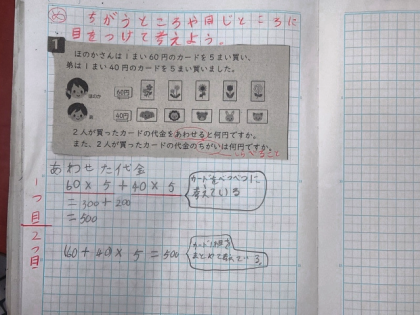 め ちがうところや同じところに
目をつけて考えよう。
1
ほのかさんは1まい60円のカードを5まい買い、
弟は1まい40円のカードを5まい買いました。
60円
弟 40円
2人が買ったカードの代金をあわせると何円ですか。
また、2人が買ったカードの代金のちがいは何円ですか。
あわせた代金
1つ目
60×5+40×5
=300+200
=500
カードをべつべつに
考えている
2つ目
(60+40)×5=500
カード
まとめて考えている